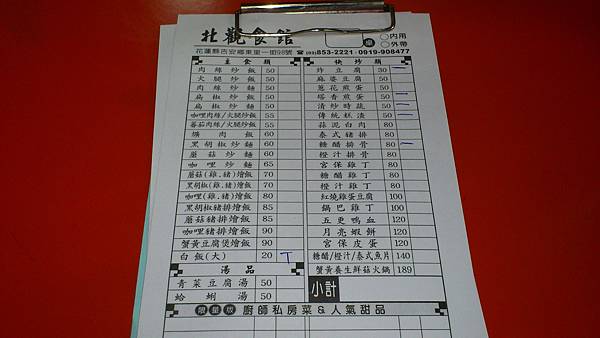 北觀食館
桌 ○內用
○外帶
花蓮縣吉安鄉東里一街98號 ☎(03)853-2221·0919-908477
主食類
肉絲炒飯 50
火腿炒飯 50
肉絲炒麵 50
扁椒炒飯 50
扁椒炒麵 50
咖哩肉絲/火腿炒飯 55
蕃茄肉絲/火腿炒飯 55
爌肉飯 60
黑胡椒炒麵 60
蘑菇炒麵 60
咖哩炒麵 65
蘑菇(雞.豬)燴飯 70
黑胡椒(雞.豬)燴飯 70
咖哩(雞.豬)燴飯 80
黑胡椒豬排燴飯 85
蘑菇豬排燴飯 85
咖哩豬排燴飯 90
蟹黃豆腐煲燴飯 90
白飯(大) 20 T
湯品
青菜豆腐湯 50
蛤蜊湯 50
快炒類
炸豆腐 30
麻婆豆腐 50
蔥花煎蛋 50
塔香煎蛋 50
清炒時蔬 50
傳統糕渣 50
蒜泥白肉 80
泰式豬排 80
糖醋排骨 80
橙汁排骨 80
宮保雞丁 80
糖醋雞丁 80
橙汁雞丁 80
紅燒雞蛋豆腐 100
鍋巴雞丁 100
五更鴨血 120
月亮蝦餅 120
宮保皮蛋 120
糖醋/橙汁/泰式魚片 140
蟹黃養生鮮菇火鍋 189
小計
限量版 廚師私房菜&人氣甜品